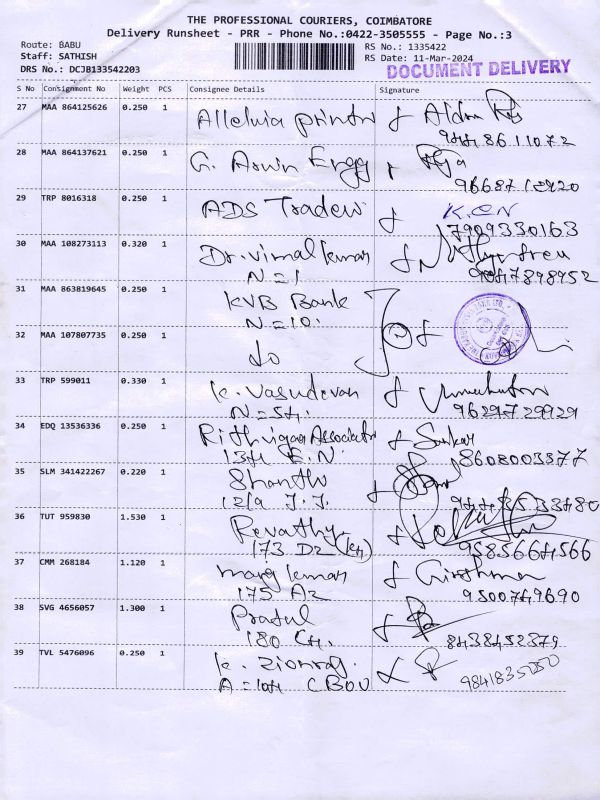 THE PROFESSIONAL COURIERS, COIMBATORE
Delivery Runsheet - PRR - Phone No.:0422-3505555 - Page No.:3
Route: BABU
RS No.: 1335422
Staff: SATHISH
RS Date: 11-Mar-2024
DRS No.: DCJB133542203
DOCUMENT DELIVERY
S No Consignment No Weight PCS Consignee Details Signature
27 MAA 864125626 0.250 1 Alleluia printer
28 MAA 864137621 0.250 1 G. Aswin Engg Raja
29 TRP 8016318 0.250 1 ADS Traders K.CN
7909330163
30 MAA 108273113 0.320 1 Dr. vimal kumar
N=1
31 MAA 863819645 0.250 1 KVB Bank
N=10.
32 MAA 107807735 0.250 1 do
33 TRP 599011 0.330 1 K. Vasudevan
9629729929
34 EDQ 13536336 0.250 1 Rithvigaa Associates Sankar
8608003877
35 SLM 341422267 0.220 1 Shanthi
12/9 J.J.
36 TUT 959830 1.530 1 Revathy
173 D2
9585664566
37 CMM 268184 1.120 1 kumar
175 A2 9500749690
38 SVG 4656057 1.300 1
180 8438452379
39 TVL 5476096 0.250 1 K. Zionraj
CBOU